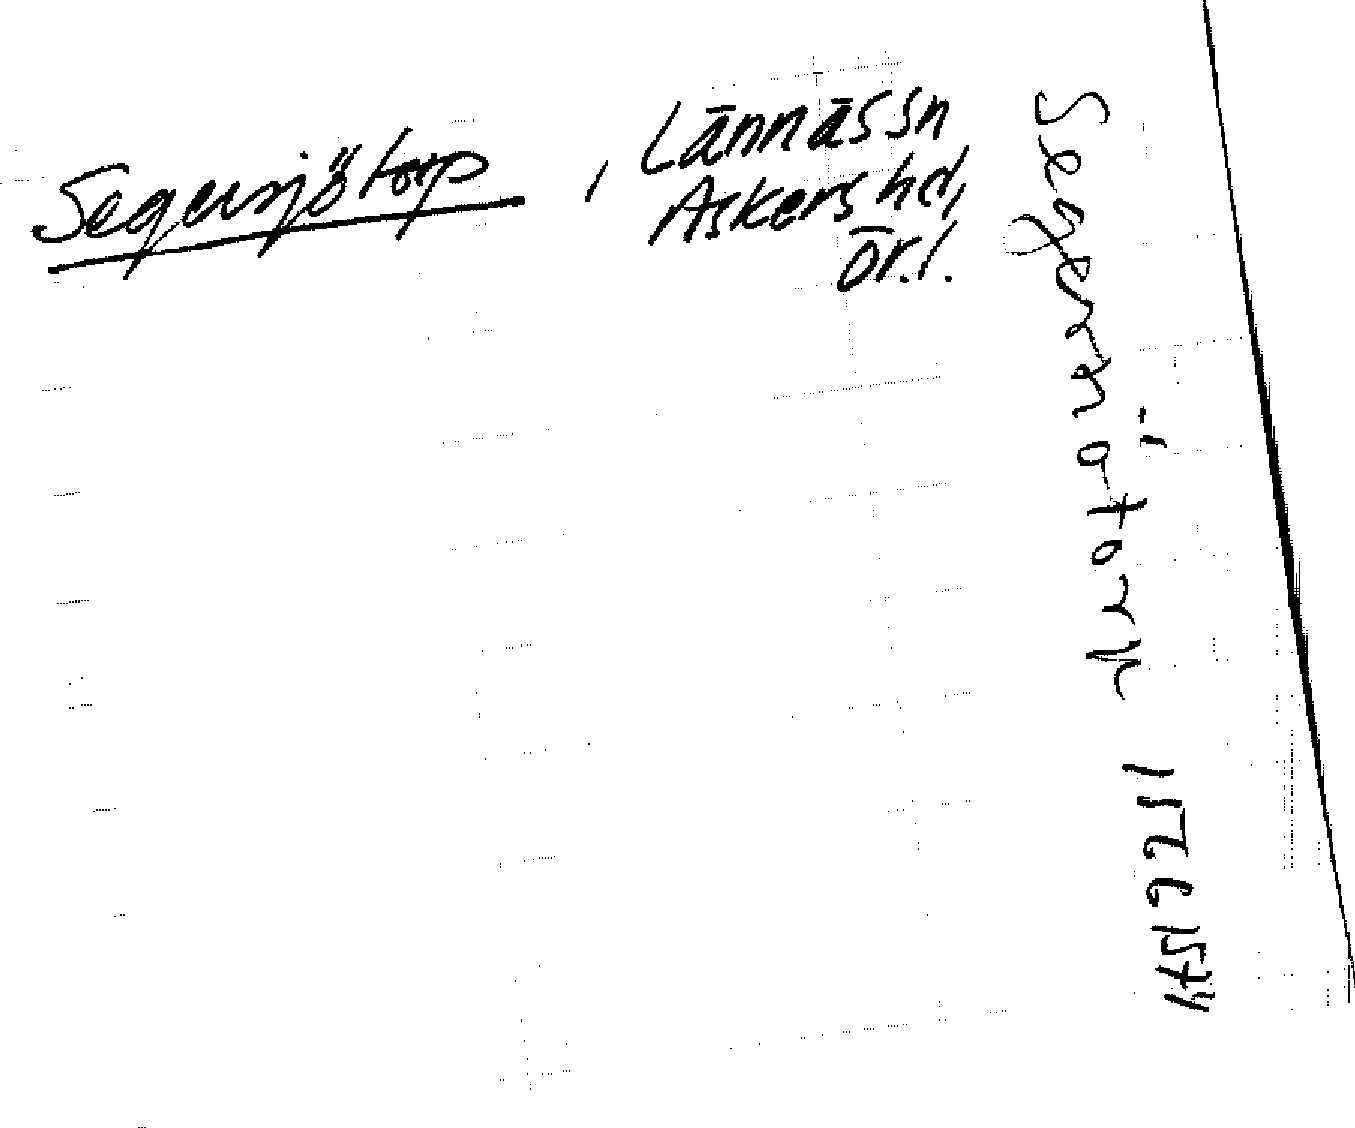 Segersjötorp, Lännäs sn
Askers hd,
Ör. l.
Segersöatorp